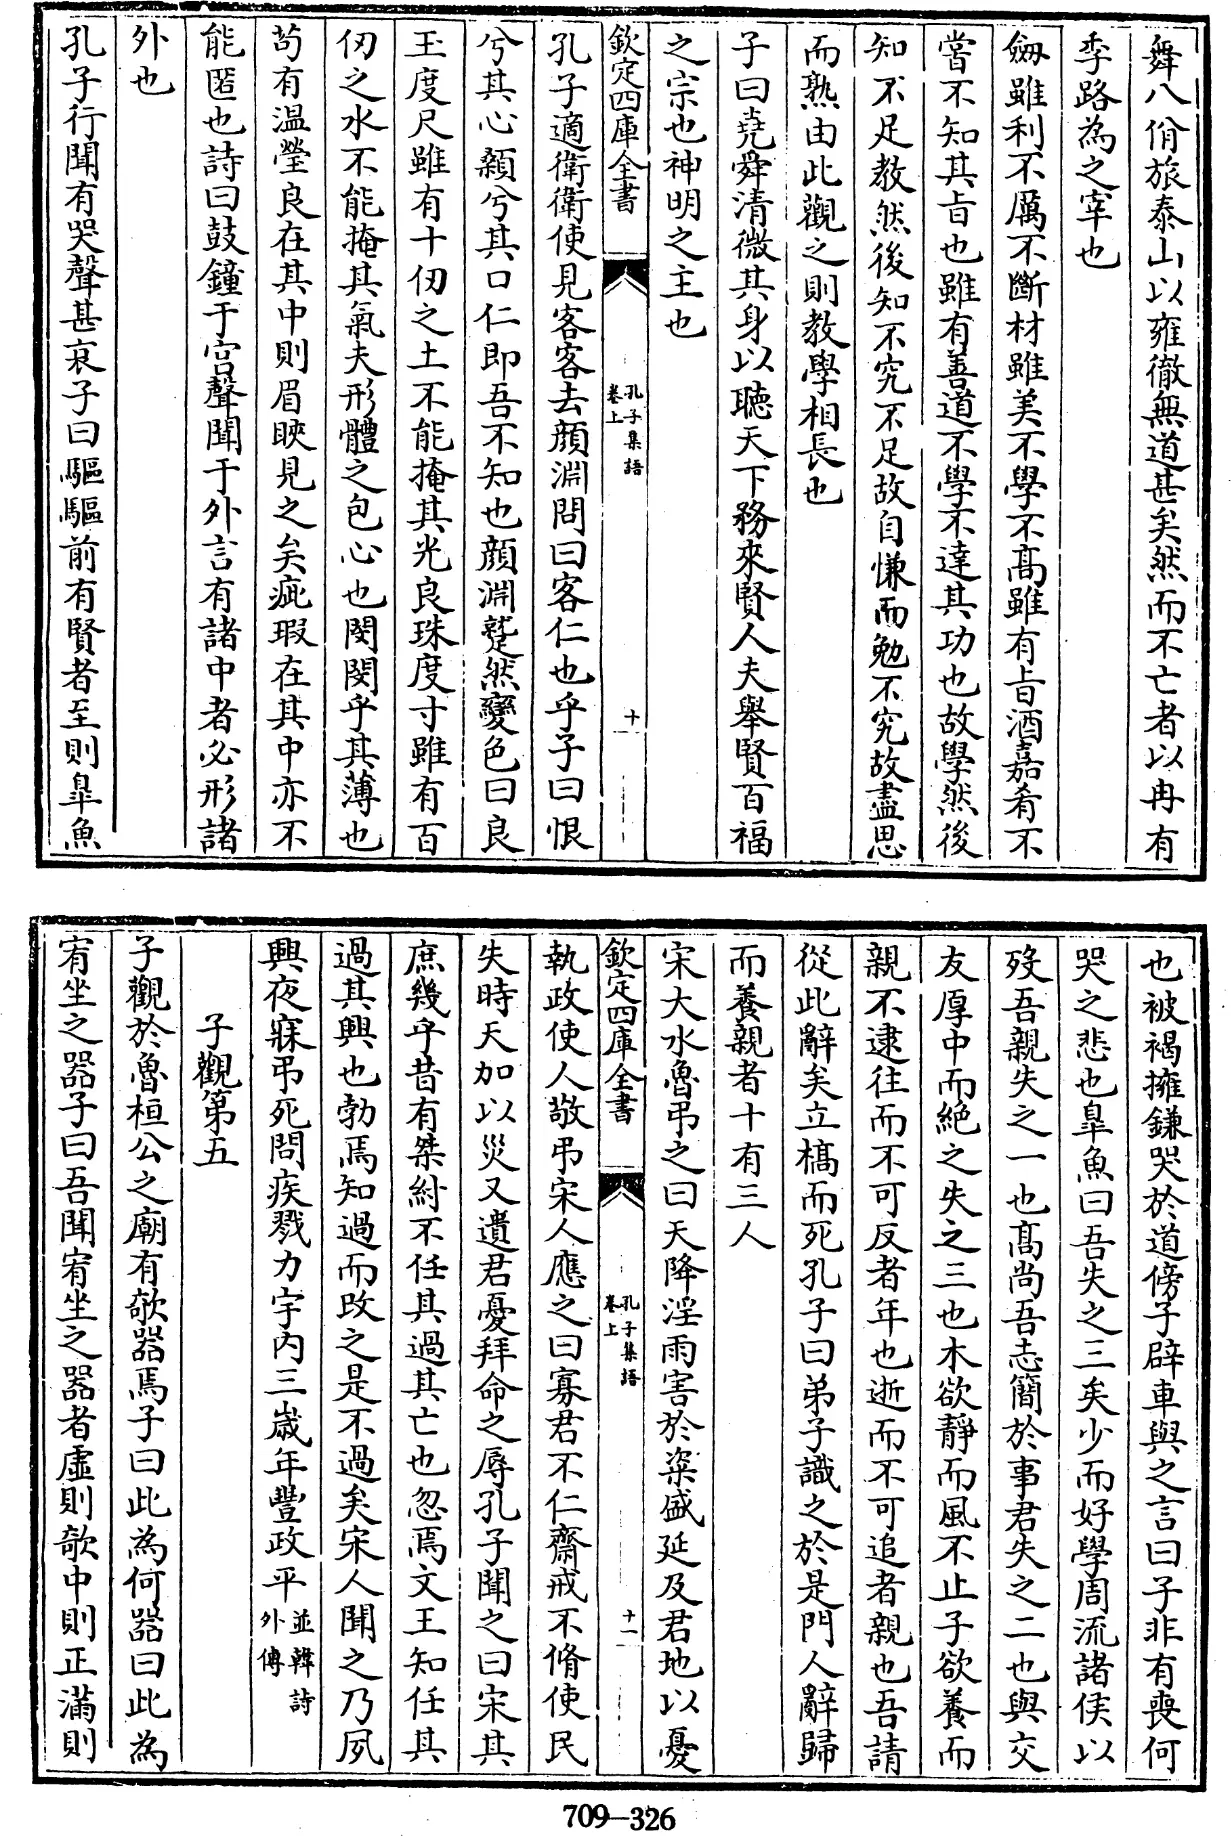 舞八佾旅泰山以雍徹無道甚矣然而不亡者以冉有
季路為之宰也
劔雖利不厲不斷材雖美不學不髙雖有㫖酒嘉肴不
嘗不知其㫖也雖有善道不學不達其功也故學然後
知不足教然後知不究不足故自慊而勉不究故盡思
而熟由此觀之則教學相長也
子曰堯舜清微其身以聽天下務來賢人夫舉賢百福
之宗也神明之主也
欽定四庫全書
孔子集語
卷上
十
孔子適衛衛使見客客去顔淵問曰客仁也乎子曰恨
兮其心顙兮其口仁即吾不知也顔淵蹵然變色曰良
玉度尺雖有十仞之土不能掩其光良珠度寸雖有百
仞之水不能掩其氣夫形體之包心也閔閔乎其薄也
茍有温瑩良在其中則眉𥇒見之矣疵瑕在其中亦不
能匿也詩曰鼓鐘于宫聲聞于外言有諸中者必形諸
外也
孔子行聞有哭聲甚哀子曰驅驅前有賢者至則臯魚
也被褐擁鎌哭於道傍子辟車與之言曰子非有喪何
哭之悲也臯魚曰吾失之三矣少而好學周流諸侯以
歿吾親失之一也髙尚吾志簡於事君失之二也與交
友厚中而絶之失之三也木欲靜而風不止子欲養而
親不逮往而不可反者年也逝而不可追者親也吾請
從此辭矣立槁而死孔子曰弟子識之於是門人辭歸
而養親者十有三人
宋大水魯弔之曰天降淫雨害於粢盛延及君地以憂
欽定四庫全書
孔子集語
卷上
十一
執政使人敬弔宋人應之曰寡君不仁齋戒不脩使民
失時天加以災又遺君憂拜命之辱孔子聞之曰宋其
庶幾乎昔有桀紂不任其過其亡也忽焉文王知任其
過其興也勃焉知過而改之是不過矣宋人聞之乃夙
興夜寐弔死問疾戮力宇内三嵗年豐政平並韓詩
外傳
子觀第五
子觀於魯桓公之廟有欹器焉子曰此為何器曰此為
宥坐之器子曰吾聞宥坐之器者虚則欹中則正滿則
709—326